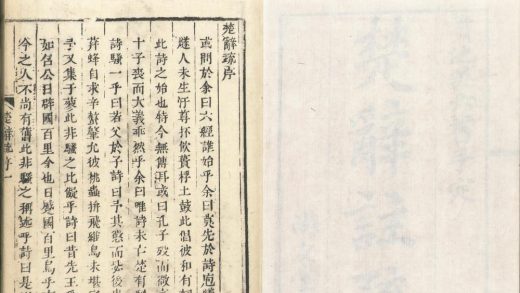 楚辭疏序
或問於余曰六經誰始乎余曰莫先於詩庖犧
燧人未生汙尊抔飲蕢桴土鼓此倡彼和有
此詩之始也特今無傳耳或曰孔子歿而微
十子喪而大義乖然乎余曰唯詩未亡楚有騷
詩騷一乎曰若父於子詩曰予其懲而毖後
荓蜂自求辛螫肇允彼桃蟲拚飛維鳥未堪家
予又集于蓼此非騷之比儗乎詩曰昔先王
如召公日辟國百里今也日蹙國百里烏乎
今之人不尚有舊此非騷之稱述乎詩曰是
楚辭疏序 一